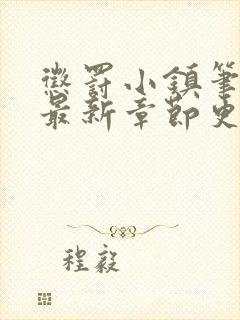 懲罰小鎮筆
最新章節史
程毅